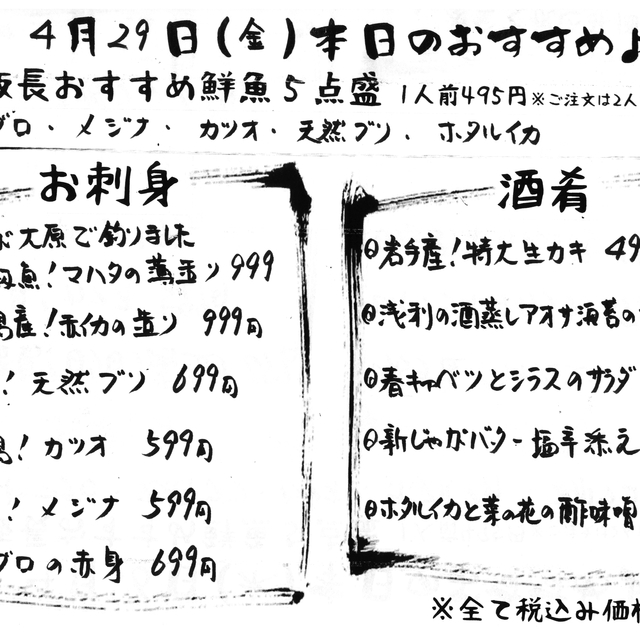 4月29日(金)本日のおすすめ
板長おすすめ鮮魚5点盛 1人前495円 ※ご注文は2人
グロ・メジナ・カツオ・天然ブリ・ホタルイカ
お刺身
が大原で釣りました
魚!マハタの薄造り 999
産!赤イカの造り 999円
!天然ブリ 699円
!カツオ 599円
!メジナ 599円
グロの赤身 699円
酒肴
岩手産!特大生カキ 49
浅利の酒蒸しアオサ海苔の
春キャベツとシラスのサラダ
新じゃがバター塩辛添え
ホタルイカと菜の花の酢味噌
※全て税込み価格